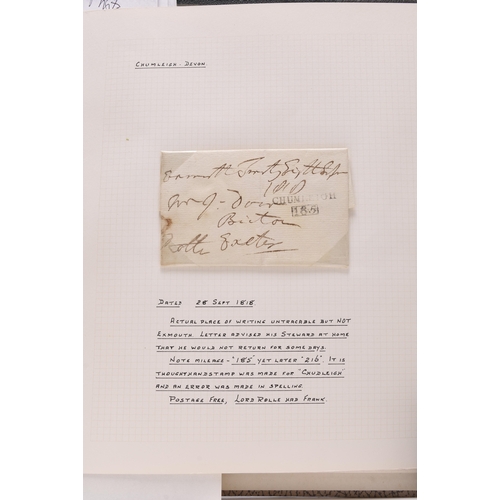 CHUMLEIGH - DEVON.
Exmouth Twenty Eight Sept
1818
Mr J. Dow
CHUMLEIGH
185
Bicton
Rolle Exeter
DATED 28 SEPT 1818.
ACTUAL PLACE OF WRITING UNTRACABLE BUT NOT
EXMOUTH. LETTER ADVISED HIS STEWARD AT HOME
THAT HE WOULD NOT RETURN FOR SOME DAYS.
NOTE MILEAGE - "185" YET LATER "216". IT IS
THOUGHT HANDSTAMP WAS MADE FOR "CHUDLEIGH"
AND AN ERROR WAS MADE IN SPELLING.
POSTAGE FREE, LORD ROLLE HAD FRANK.